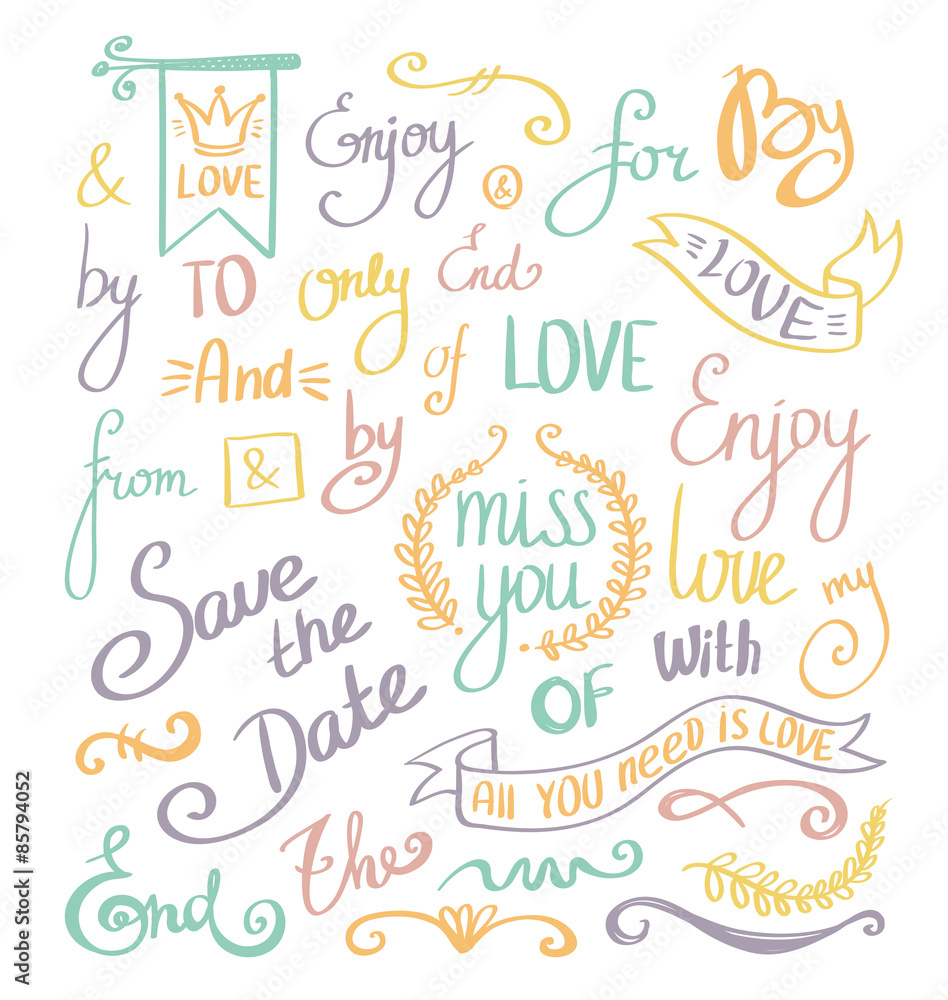 LOVE
Enjoy
for
By
&
&
by
TO
only
End
LOVE
And
of
LOVE
Enjoy
from
&
by
miss
you
love
my
Save
the
Date
With
OF
All YOU need is LOVE
End
the
Adobe Stock | #85794052